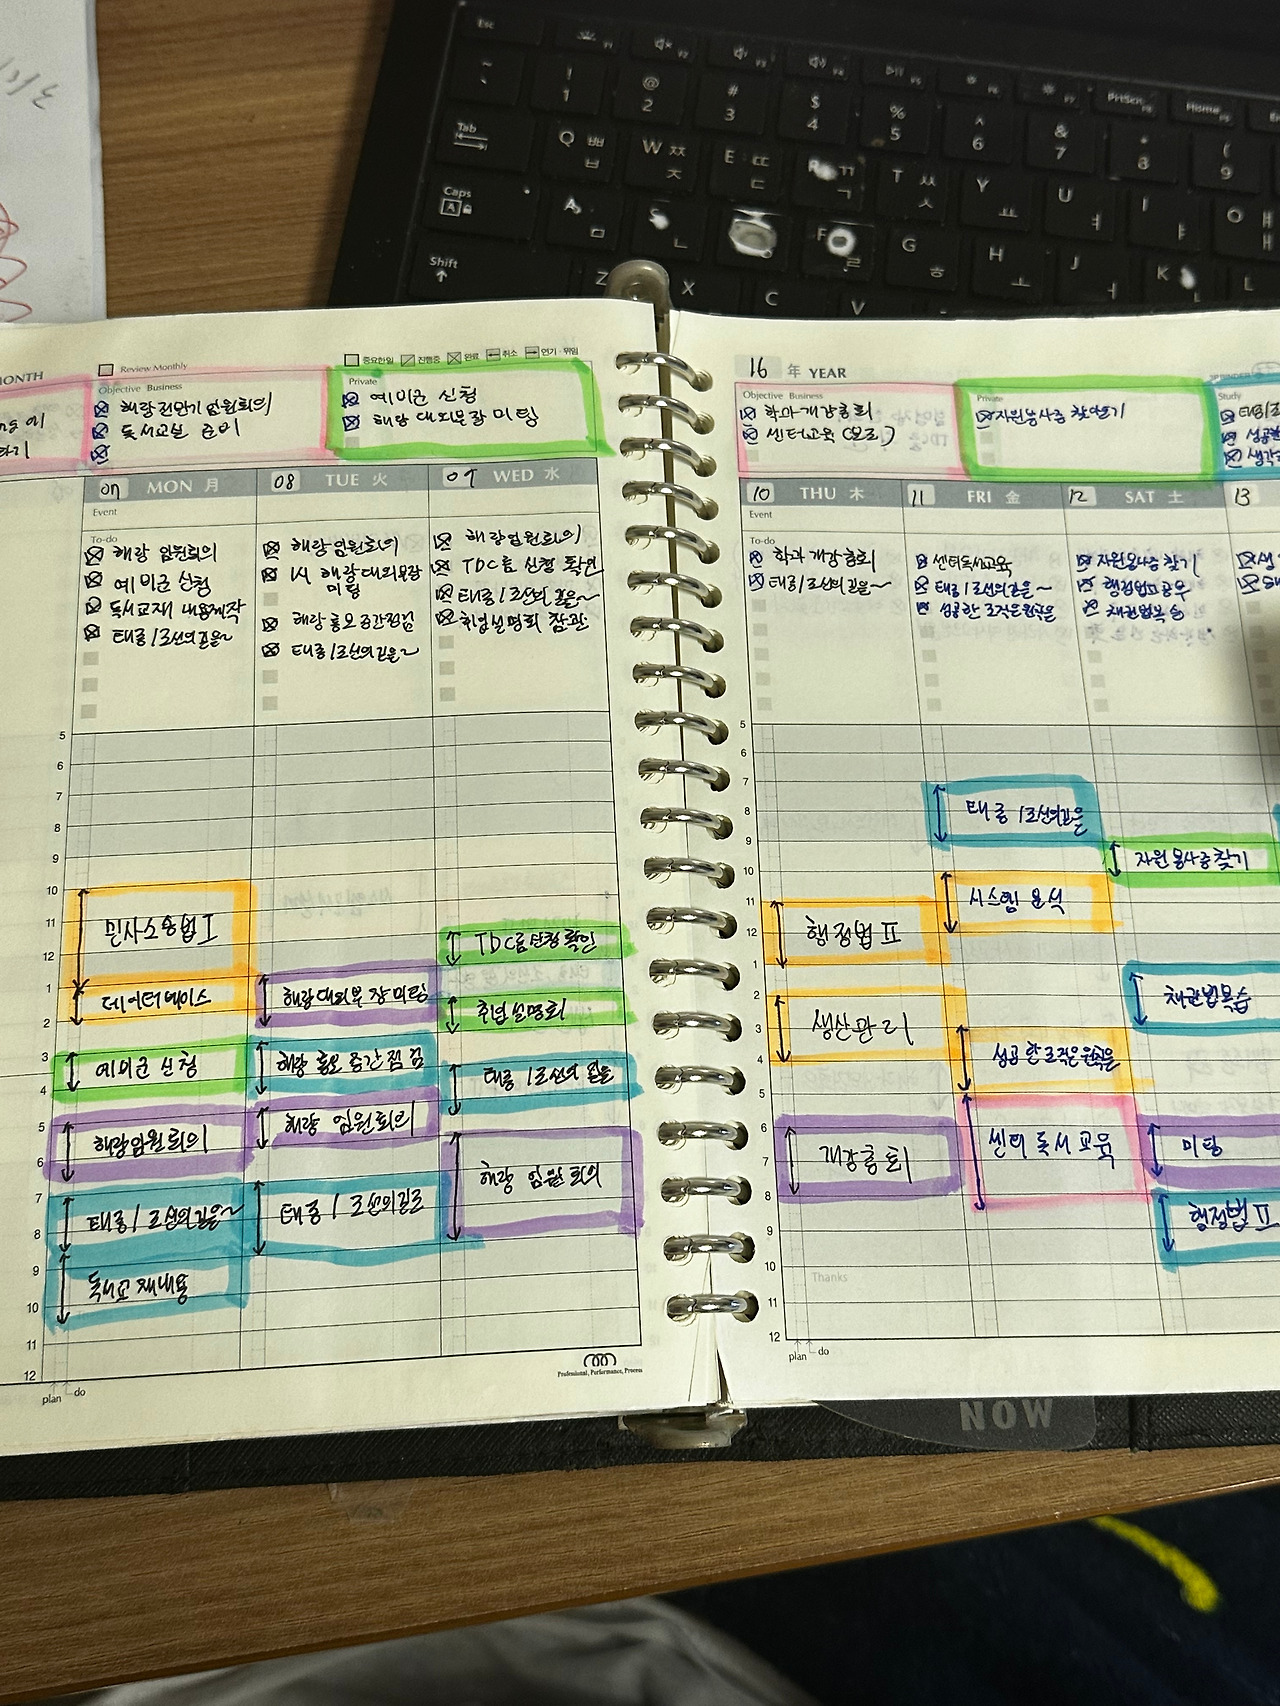 MONTH
Review Monthly
중요한일 진행중 완료 취소 연기·위임
Objective Business
해랑 임원회의
독서교실 준비
Private
예비군 신청
해랑 대외부장 미팅
07 MON 月
08 TUE 火
09 WED 水
Event
To-do
해랑 임원회의
예비군 신청
독서교재 내용제작
태종/조선의길을~
해랑임원회의
1시 해랑대외부장
미팅
해랑 홍보 중간점검
태종/조선의길을~
해랑임원회의
TDC룸 신청 확인
태종/조선의 길을~
취업설명회 참관
5
6
7
8
9
10
11
12
1
2
3
4
5
6
7
8
9
10
11
12
민사소송법 I
데이터베이스
예비군 신청
해랑임원회의
태종/조선의길을~
독서교재내용
해랑대외부장미팅
해랑 홍보 중간점검
해랑 임원회의
태종/조선의길로
TDC룸신청확인
취업설명회
태종/조선의 길을
해랑 임원회의
plan do
Professional, Performance, Process
16 年 YEAR
Objective Business
학과개강총회
센터교육
Private
자원봉사증 찾기
Study
10 THU 木
11 FRI 金
12 SAT 土
13
Event
To-do
학과 개강총회
태종/조선의길을~
센터독서교육
태종/조선의길을~
성공한 조직은원칙은
자원봉사증 찾기
행정법II공부
채권법복습
5
6
7
8
9
10
11
12
1
2
3
4
5
6
7
8
9
10
11
12
행정법 II
생산관리
개강총회
Thanks
태종/조선의길을
시스템 분석
성공한조직은원칙은
센터 독서교육
자원봉사증찾기
채권법복습
미팅
행정법 II
plan do
NOW
Esc
Tab
Caps
Shift
! 1
@ 2
# 3
$ 4
% 5
^ 6
& 7
* 8
( 9
Q ㅃ ㅂ
W ㅉ ㅈ
E ㄸ ㄷ
R ㄲ ㄱ
T ㅆ ㅅ
Y ㅛ
U ㅕ
I ㅑ
O ㅒ ㅐ
A ㅁ
S ㄴ
F ㄹ
G ㅎ
H ㅗ
J ㅓ
K
L
Z
X
C
V